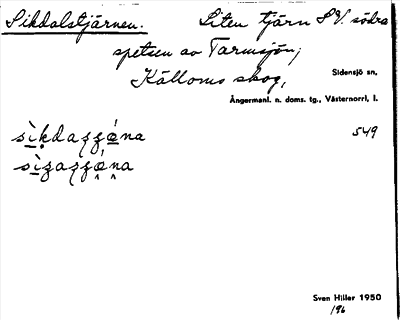 Sikdalstjärnen. Liten tjärn S.V. södra
spetsen av Tarmsjön;
Källoms skog,
Sidensjö sn,
Ångermanl. n. doms. tg., Västernorrl, l.
549
Sven Hiller 1950
196